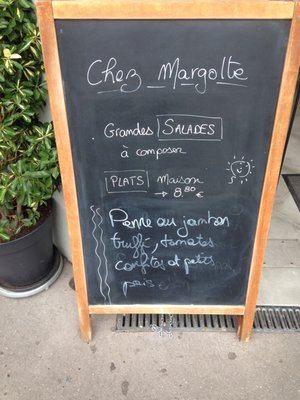 Chez Margotte
Grandes SALADES
à composer
PLATS Maison
→ 8.80 €
Penne au jambon
truffé, tomates
confites et petits
pois